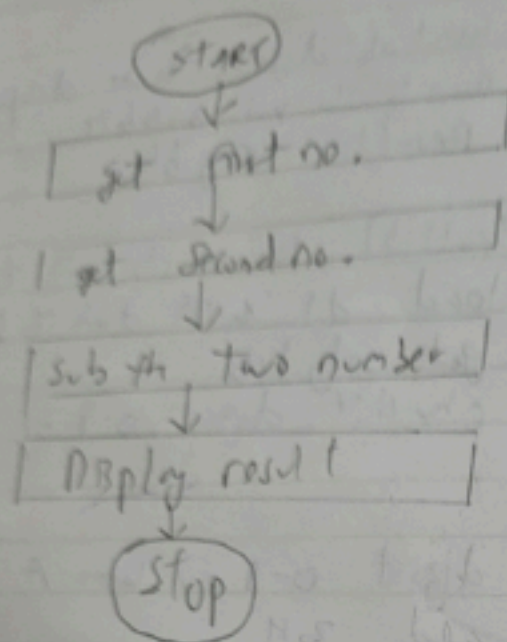 START
get first no.
get second no.
sub the two number
Display result
Stop